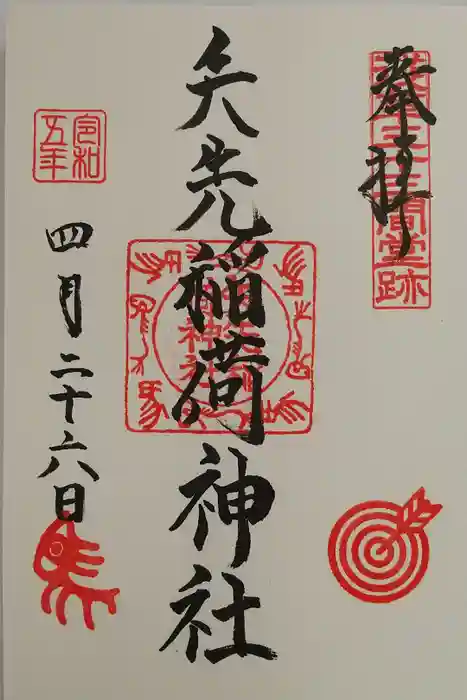 奉拝
浅草三十三間堂跡
矢先稲荷神社
令和
五年
四月二十六日